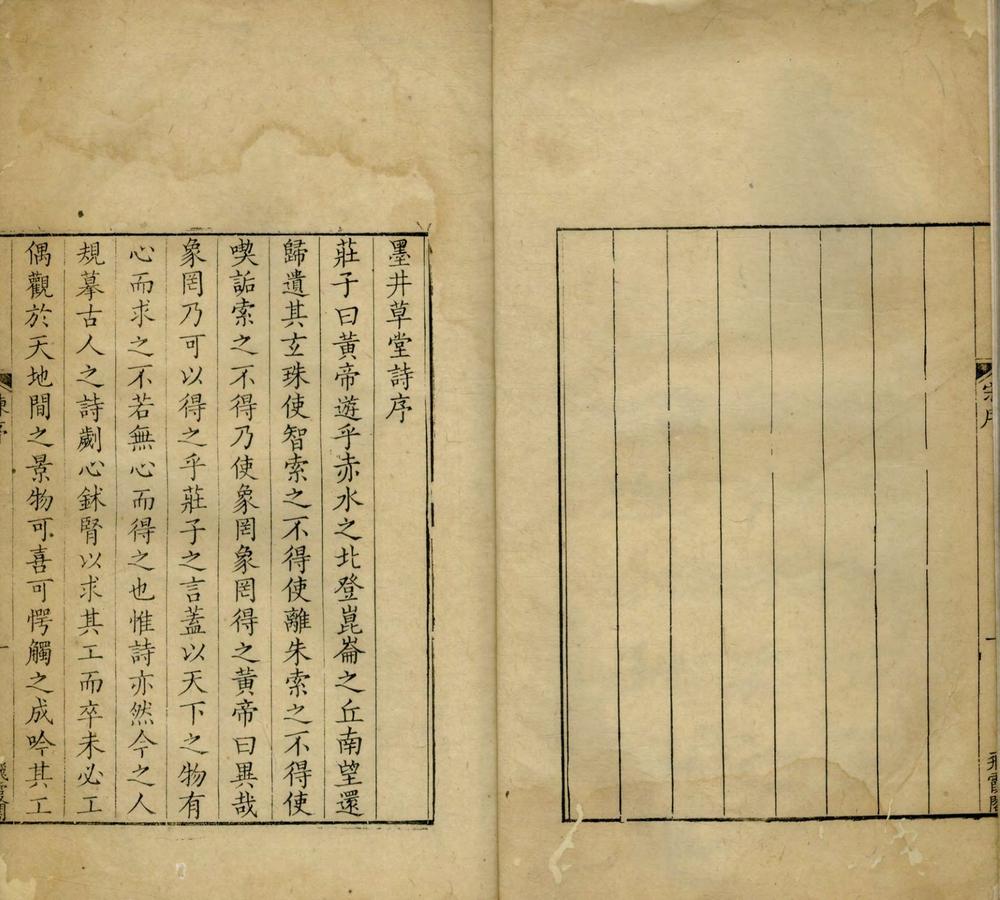 墨井草堂詩序
莊子曰黃帝遊乎赤水之北登崑崙之丘南望還
歸遺其玄珠使智索之不得使離朱索之不得使
喫詬索之不得乃使象罔象罔得之黃帝曰異哉
象罔乃可以得之乎莊子之言蓋以天下之物有
心而求之不若無心而得之也惟詩亦然今之人
規摹古人之詩劌心鉥腎以求其工而卒未必工
偶觀於天地間之景物可喜可愕觸之成吟其工